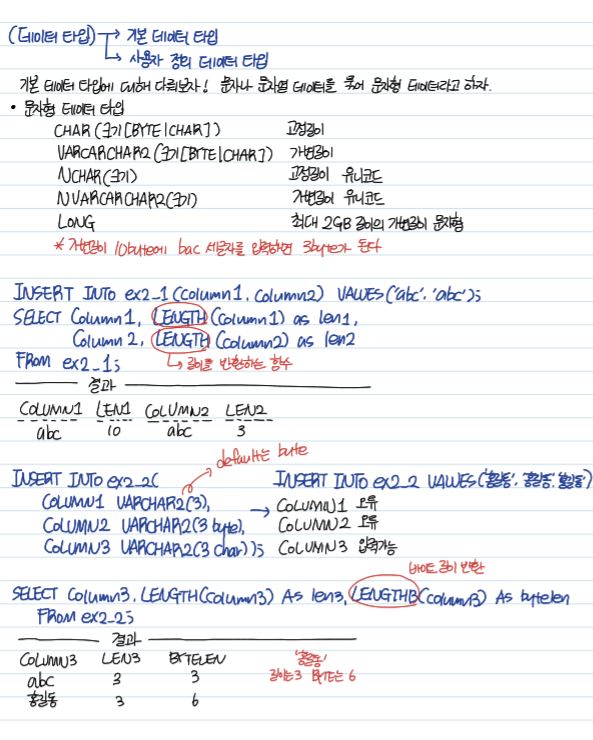 (데이터 타입) → 기본 데이터 타입
↳ 사용자 정의 데이터 타입
기본 데이터 타입에 대해 다뤄보자! 문자나 문자열 데이터를 묶어 문자형 데이터라고 하자.
• 문자형 데이터 타입
CHAR(크기[BYTE|CHAR]) 고정길이
VARCARCHAR2(크기[BYTE|CHAR]) 가변길이
NCHAR(크기) 고정길이 유니코드
NVARCARCHAR2(크기) 가변길이 유니코드
LONG 최대 2GB 길이의 가변길이 문자형
* 가변길이 10byte에 bac 세글자를 입력하면 3byte가 된다
INSERT INTO ex2_1(column1, column2) VALUES('abc', 'abc');
SELECT Column1, LENGTH(Column1) as len1,
Column2, LENGTH(column2) as len2
FROM ex2_1;
↳ 길이를 반환하는 함수
결과
COLUMN1 LEN1 COLUMN2 LEN2
abc 10 abc 3
default는 byte
INSERT INTO ex2_2( INSERT INTO ex2_2 VALUES('홍길동', '홍길동', '홍길동')
COLUMN1 VARCHAR2(3), → COLUMN1 오류
COLUMN2 VARCHAR2(3 byte), COLUMN2 오류
COLUMN3 VARCHAR2(3 char)); COLUMN3 입력가능
바이트 길이 반환
SELECT Column3, LENGTH(column3) As len3, LENGTHB(column3) As bytelen
FROM ex2_2;
결과
COLUMN3 LEN3 BYTELEN '홍길동'
abc 3 3 길이는3 BYTE는 6
홍길동 3 6